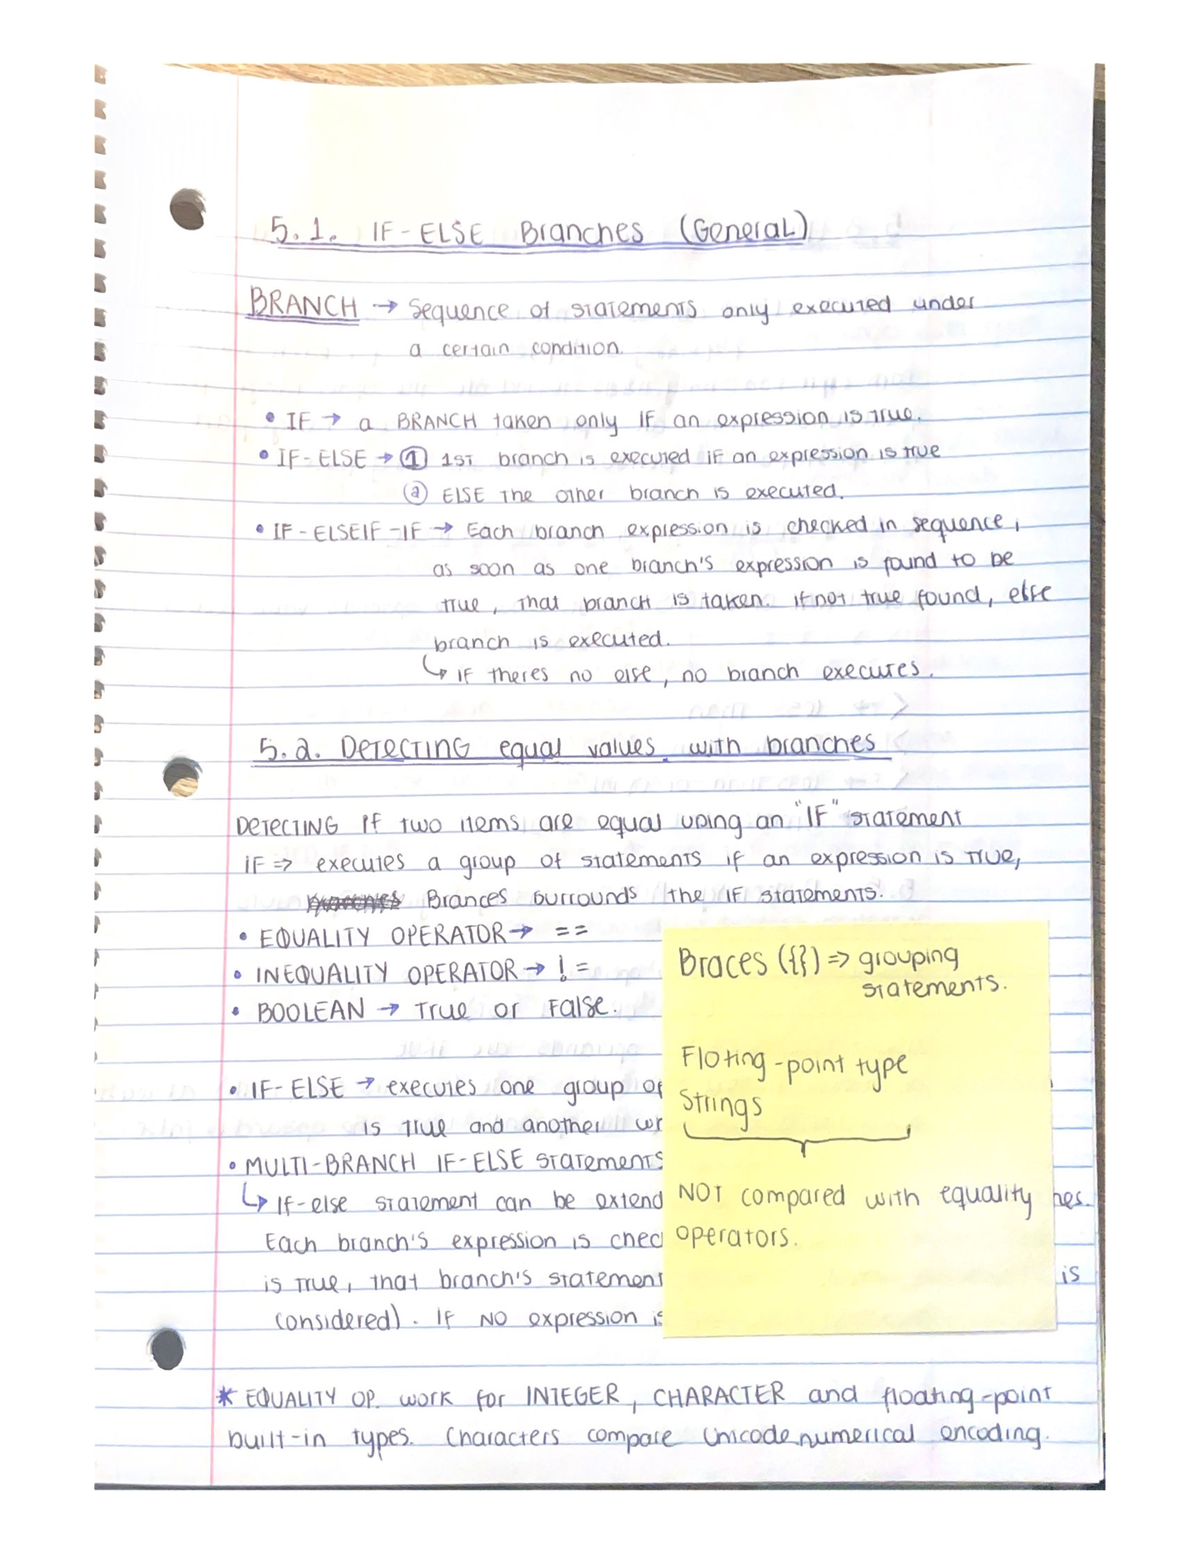 5.1. IF-ELSE Branches (General)
BRANCH → sequence of statements only executed under
a certain condition.
• IF → a BRANCH taken only IF an expression is true.
• IF-ELSE → ① 1ST branch is executed if an expression is true
② ELSE the other branch is executed.
• IF-ELSEIF-IF → Each branch expression is checked in sequence,
as soon as one branch's expression is found to be
true, that branch is taken. if not true found, else
branch is executed.
↳ IF theres no else, no branch executes.
5.2. DETECTING equal values with branches
DETECTING if two items are equal using an "IF" statement
IF => executes a group of statements if an expression is true,
Brances surrounds the IF statements.
• EQUALITY OPERATOR → ==
• INEQUALITY OPERATOR → !=
• BOOLEAN → True or False.
Braces ({}) => grouping
statements.
Floting-point type
Strings
NOT compared with equality
operators.
• IF-ELSE → executes one group of
is true and another
• MULTI-BRANCH IF-ELSE statements
↳ If-else statement can be extend hes.
Each branch's expression is chec
is true, that branch's statement is
considered). If NO expression is
* EQUALITY OP. work for INTEGER, CHARACTER and floating-point
built-in types. Characters compare Unicode numerical encoding.